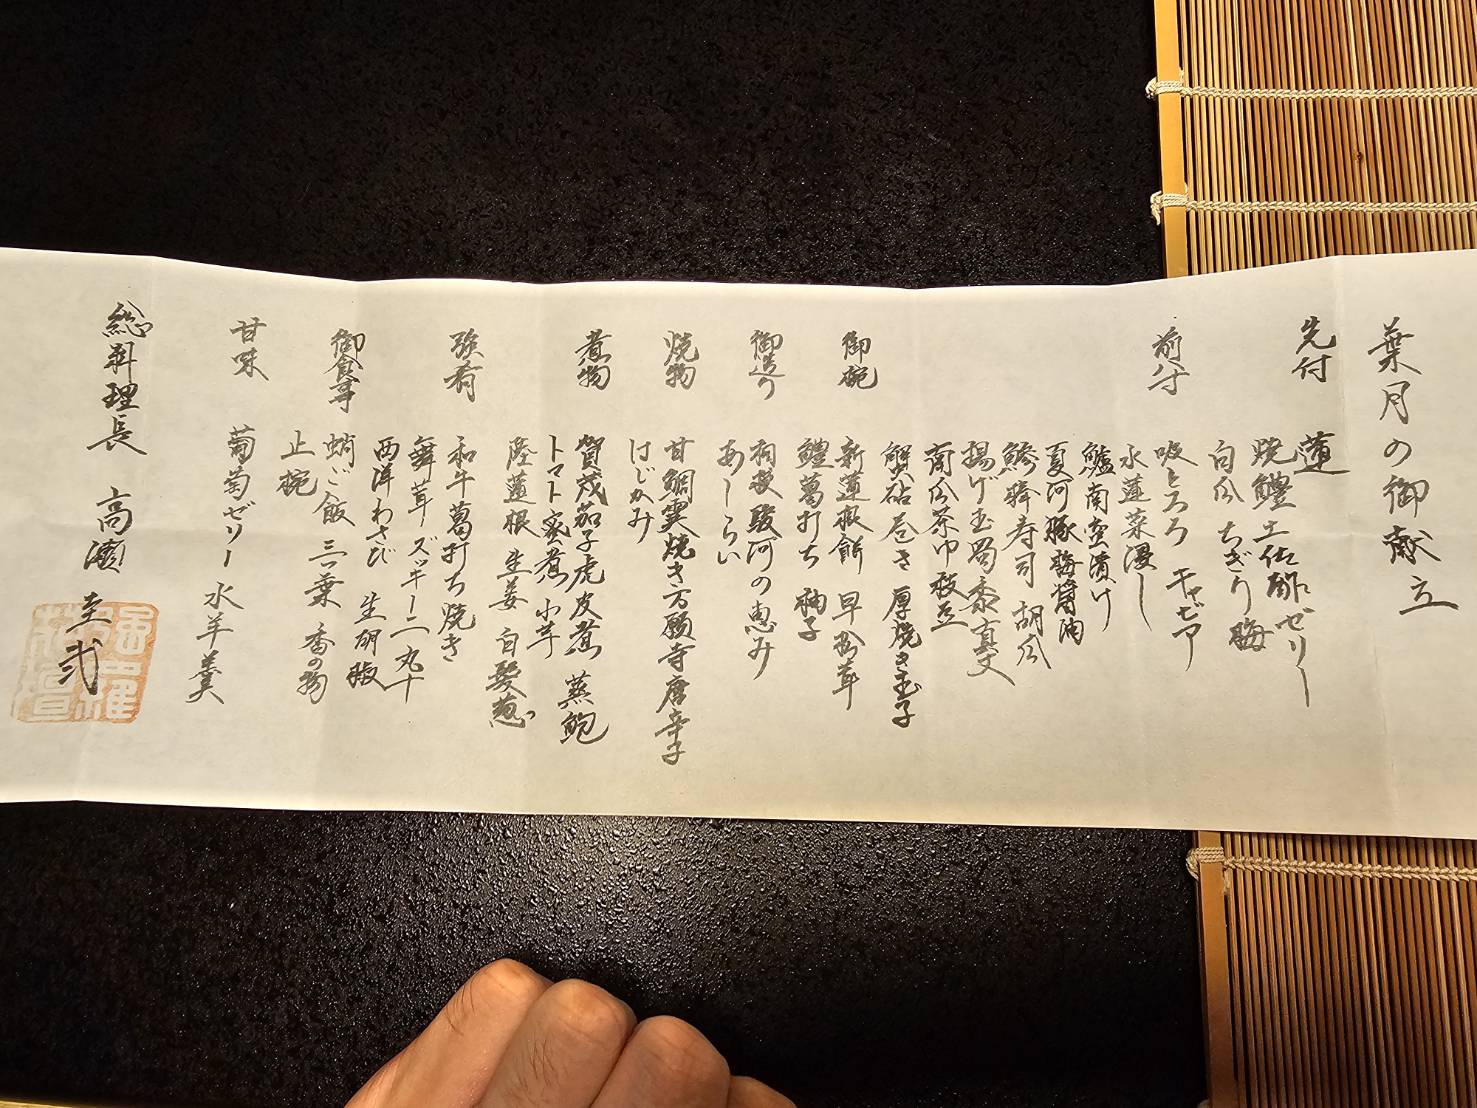 葉月の御献立
先付
蓮
焼鱧 土佐酢ゼリー
白瓜 ちぎり梅
前付
吸とろろ キャビア
水蓮菜浸し
鱸南蛮漬け
夏河豚 梅醤油
鯵棒寿司 胡瓜
揚げ玉蜀黍真丈
南瓜茶巾 枝豆
蟹砧巻き 厚焼き玉子
御椀
新蓮根餅 早松茸
鱧葛打ち 柚子
御造り
初秋駿河の恵み
あしらい
焼物
甘鯛雲丹焼き 万願寺唐辛子
はじかみ
煮物
賀茂茄子虎皮煮 蒸鮑
トマト蜜煮 小芋
強肴
和牛葛打ち焼き
舞茸 ズッキーニ 丸十
西洋わさび 生胡椒
御食事
蛸ご飯 三つ葉 香の物
止椀
甘味
葡萄ゼリー 水羊羹
総料理長 高濱